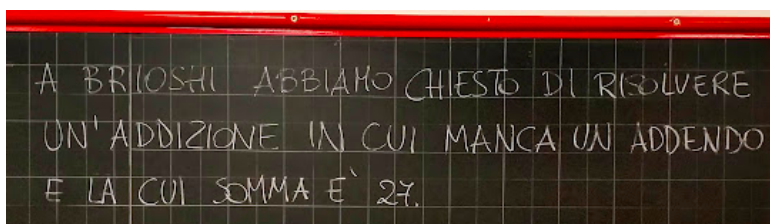 A BRIOSHI ABBIAMO CHIESTO DI RISOLVERE
UN'ADDIZIONE IN CUI MANCA UN ADDENDO
E LA CUI SOMMA È 27.